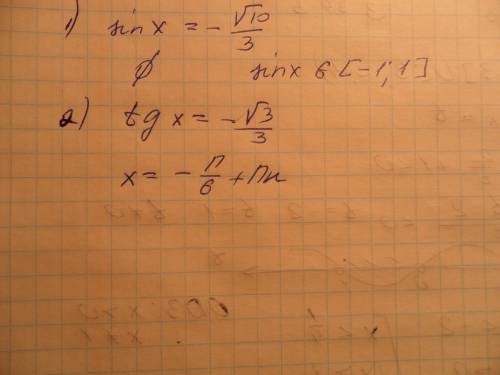 1) sin x = - √10/3
∅ sinx ∈ [-1; 1]
2) tg x = - √3/3
x = - π/6 + πn